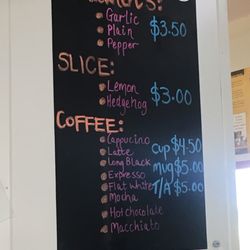 Garlic
Plain $3.50
Pepper
SLICE:
Lemon
Hedgehog $3.00
COFFEE:
Cappucino
Latte cup $4.50
Long Black
Expresso mug $5.00
Flat White T/A $5.00
Mocha
Hot chocolate
Macchiato